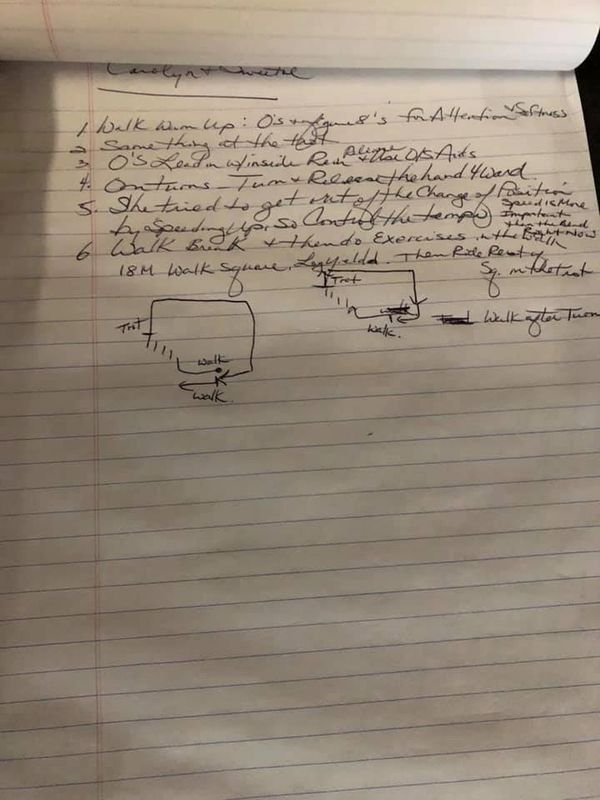 Carolyn +
1. Walk Warm Up: O's + figure 8's for Attention + Softness
2 Same thing at the trot
3 O'S Lead in w/inside Rein Aligne + Use O/S Aids
4. On turns - Turn + Release the hand 4ward.
5. She tried to get out of the Change of Position
by Speeding Up, So Control the tempo
Speed is More
Important
than the Bend
Right Now
6 Walk Break + then do Exercises in the Walk
18 M Walk Square, Leg yield. Then Ride Rest of
Sq. in the trot
Trot
Walk.
Walk after Turn
Trot
Walk
Walk.